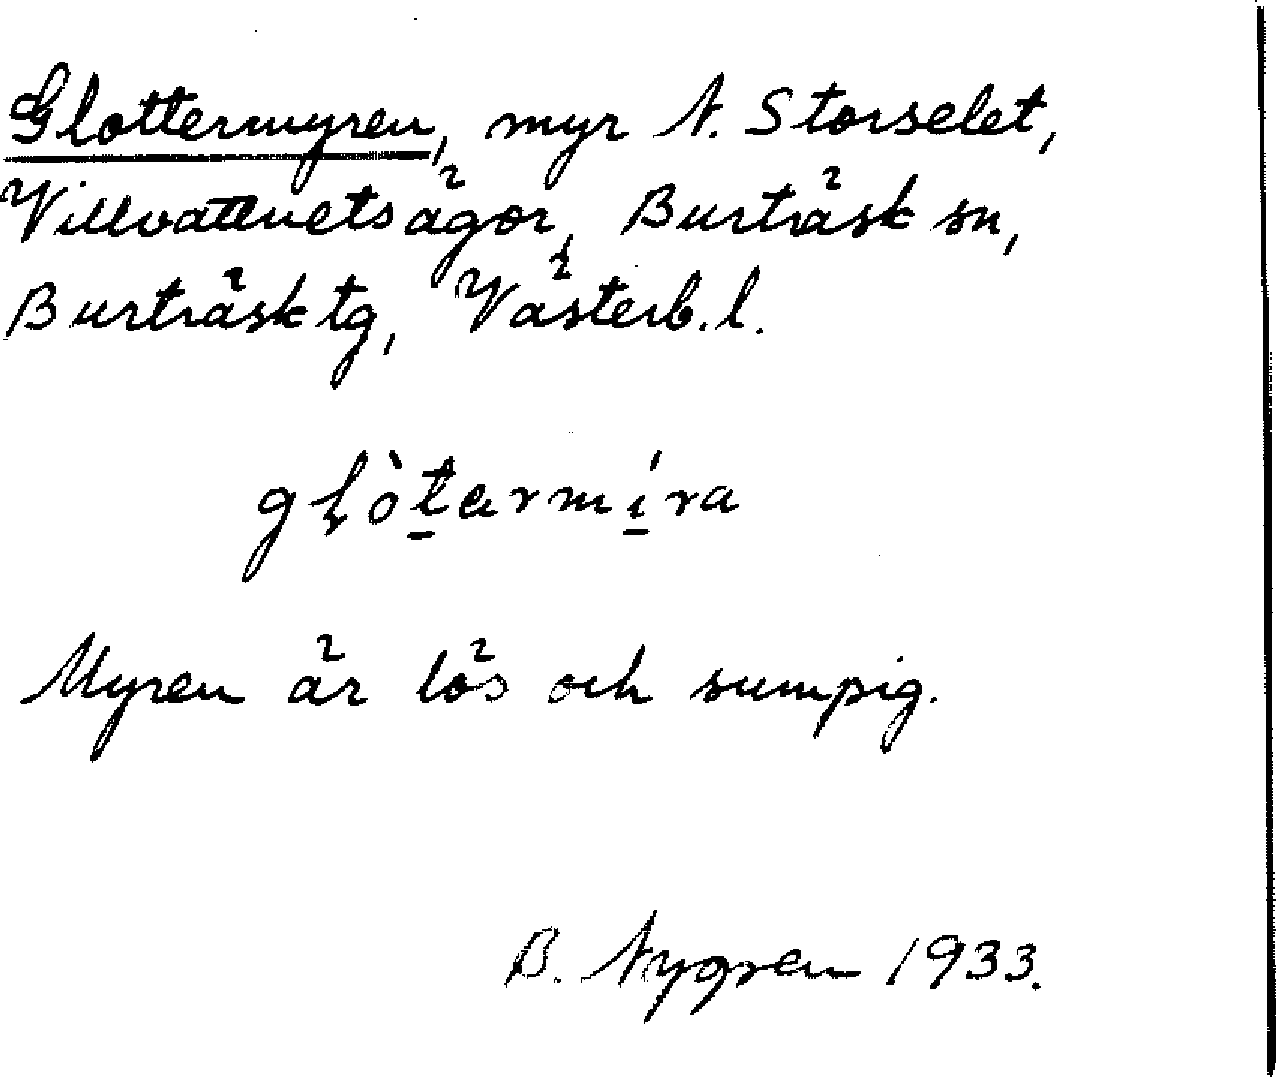 Glottermyren, myr N. Storselet,
Villvattnets ägor, Burträsk sn,
Burträsk tg, Västerb. l.
glòtarmíra
Myren är lös och sumpig.
B. Nygren 1933.